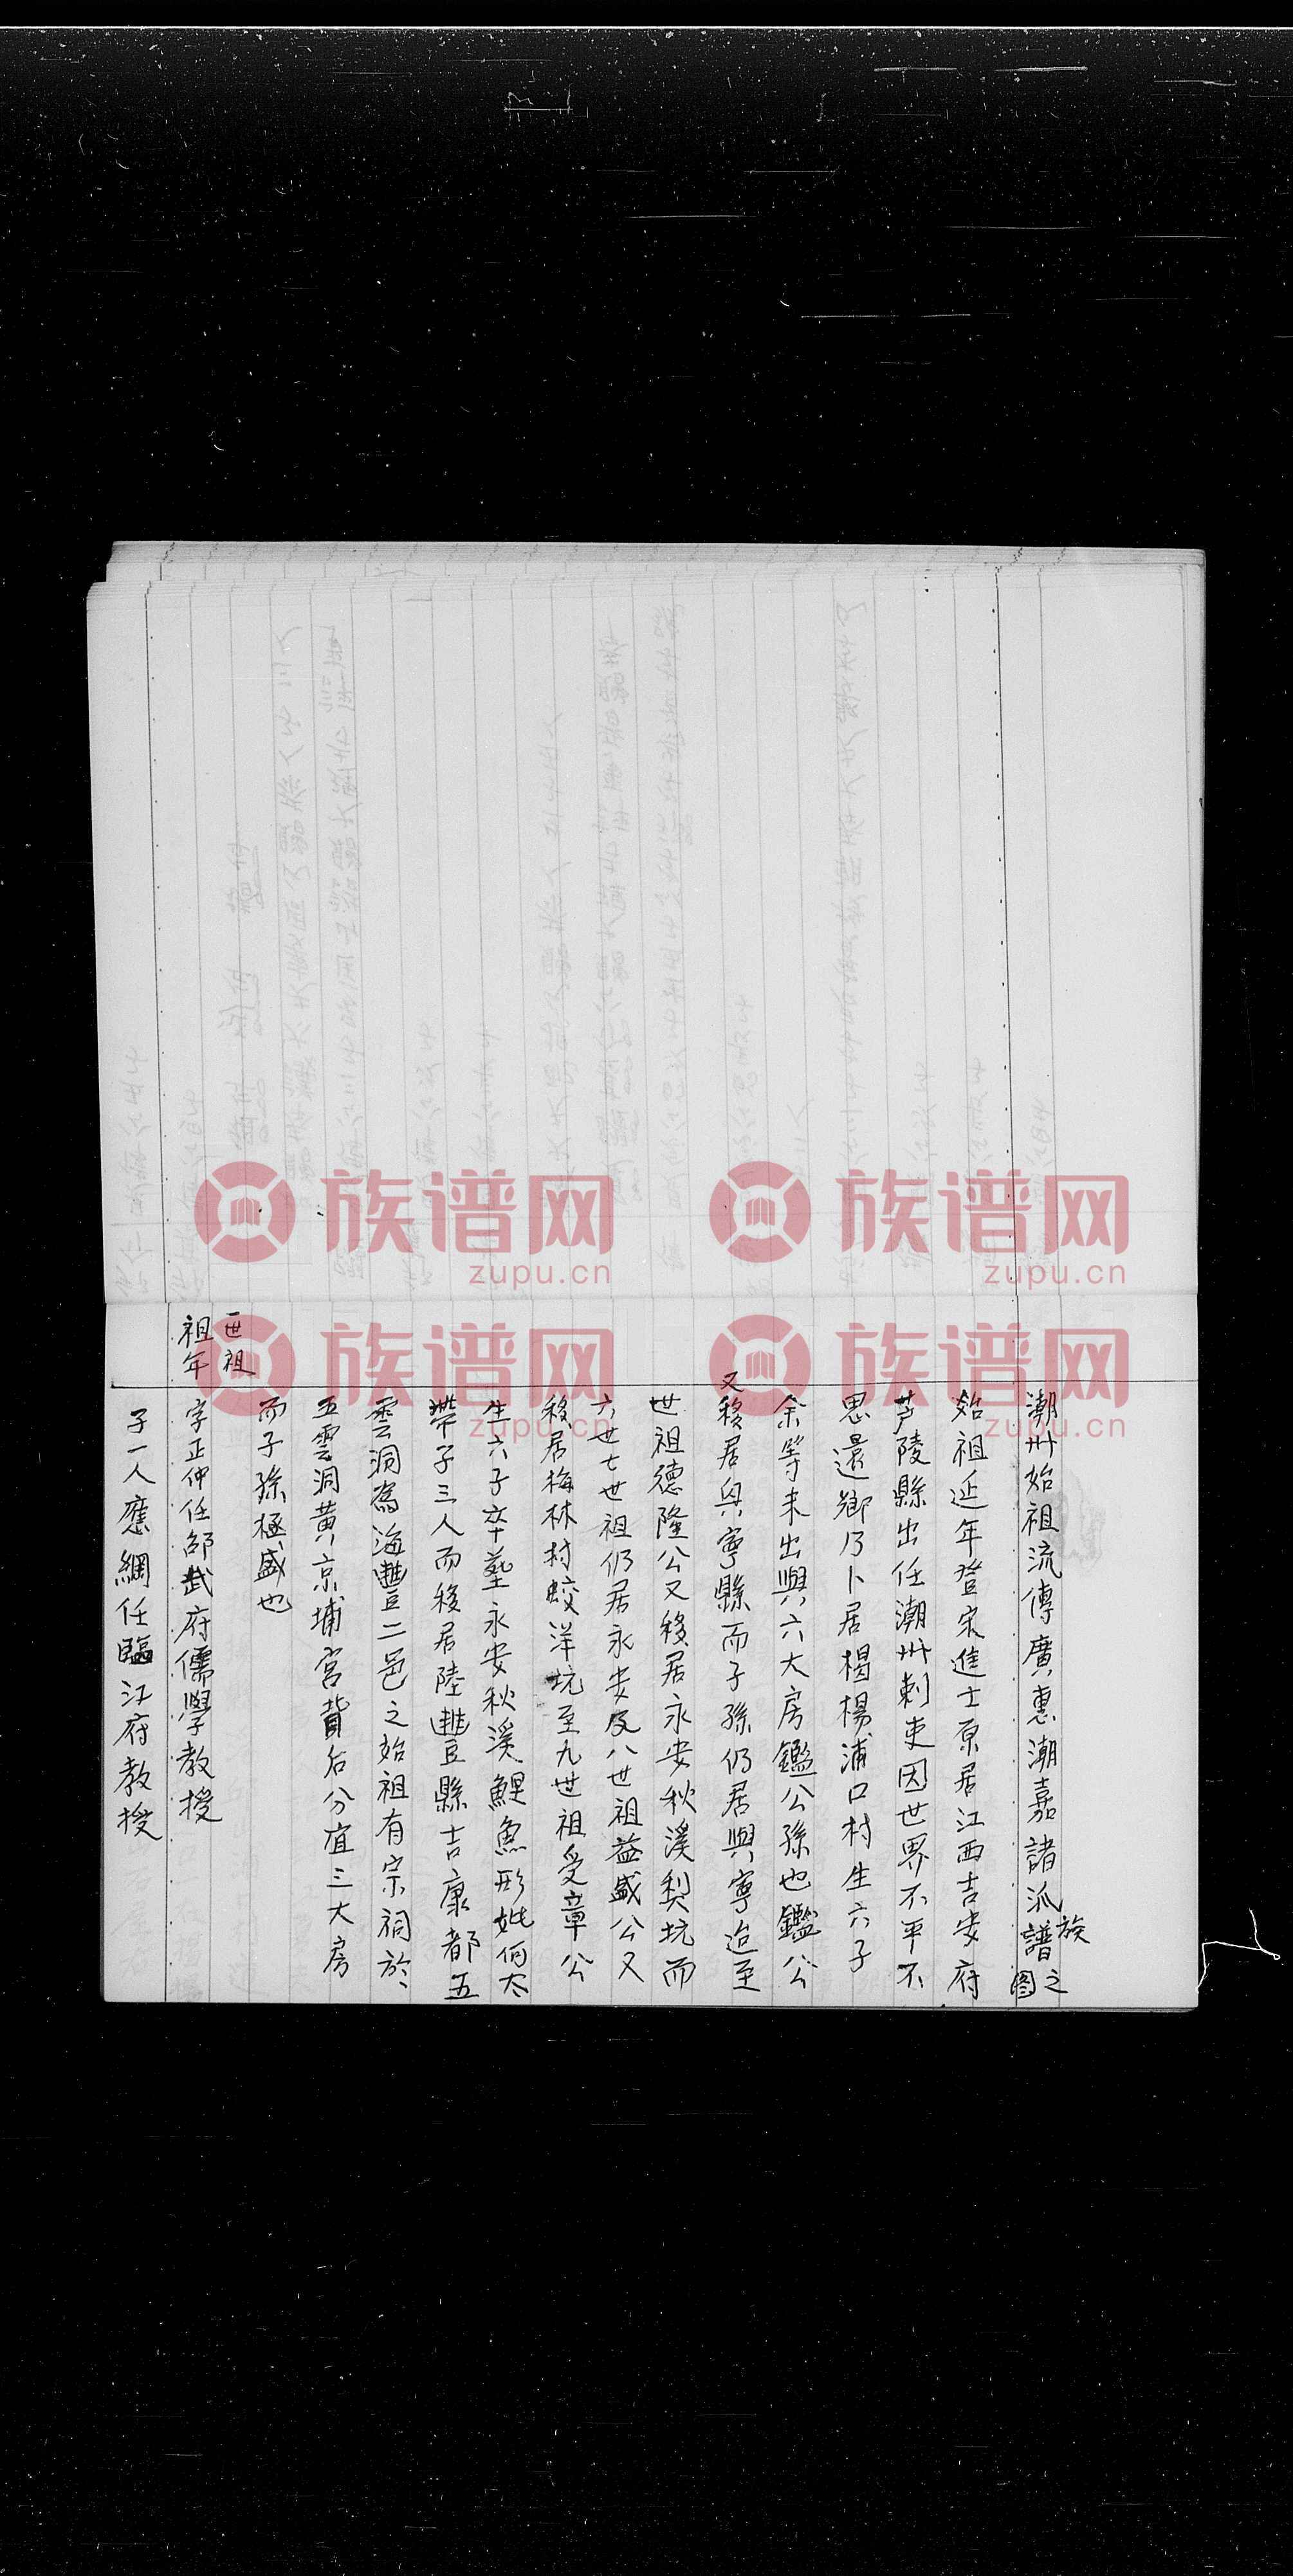 潮州始祖流傳廣惠潮嘉諸派族譜之圖
始祖延年登宋進士原居江西吉安府
芦陵縣出任潮州刺吏因世界不平不
思還鄉乃卜居揭楊浦口村生六子
余等未出與六大房鑑公孫也鑑公
又移居與寧縣而子孫仍居與寧迨至
世祖德隆公又移居永安秋溪梨坑而
六世七世祖仍居永安及八世祖益盛公又
移居梅林村蛟洋坑至九世祖受章公
生六子卒塟永安秋溪鯉魚形妣何太
帶子三人而移居陸豐縣吉康都五
雲洞為海豐二邑之始祖有宗祠於
五雲洞黄京埔宮背后分直三大房
而子孫極盛也
一世祖
祖年 字正仲任邵武府儒學教授
子一人應綱任臨江府教授
族谱网
zupu.cn
族谱网
zupu.cn
族谱网
zupu.cn
族谱网
zupu.cn